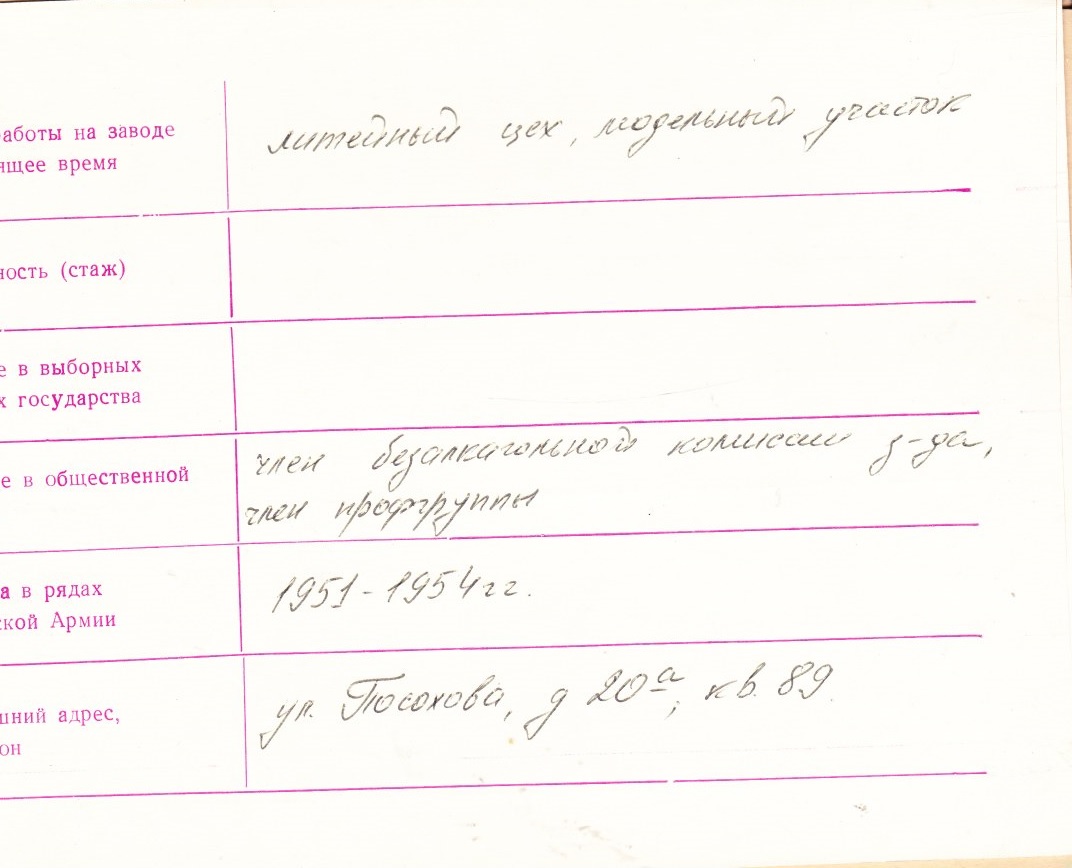 работы на заводе
ящее время
литейный цех, модельный участок
ность (стаж)
е в выборных
х государства
е в общественной
член безалкагольной комисси з-да,
член профгруппы
а в рядах
ской Армии
1951-1954гг.
шний адрес,
он
ул. Посохова, д 20а, кв. 89.